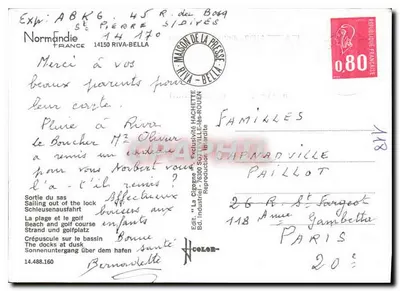 Exp: A B K G . 45 R. du Bosq
St PIERRE S/DIVES
14 170
Normandie
FRANCE
14150 RIVA-BELLA
Merci à vos
beaux parents pour
leur carte.
Pluie à Riva.
Le Boucher Mr Olivier
a remis un
pour vous Norbert vous
l'a-t'il remis ?
Affectueux
bisous aux
enfants
Bonne
santé
Bernadette
Sortie du sas
Sailing out of the lock
Schleusenausfahrt
La plage et le golf
Beach and golf course
Strand und golfplatz
Crépuscule sur le bassin
The docks at dusk
Sonnenuntergang über dem hafen
14.488.160
MAISON DE LA PRESSE
RIVA - BELLA
Edit. "La Cigogne" - Exclusivité HACHETTE
Bd. Industriel - 76300 SOTTEVILLE-lès-ROUEN
Reproduction interdite
COLOR
REPUBLIQUE FRANÇAISE
0,80
FAMILLES
PAILLOT
26 R. St Fargeot
118 Avenue Gambetta
PARIS
20e
118